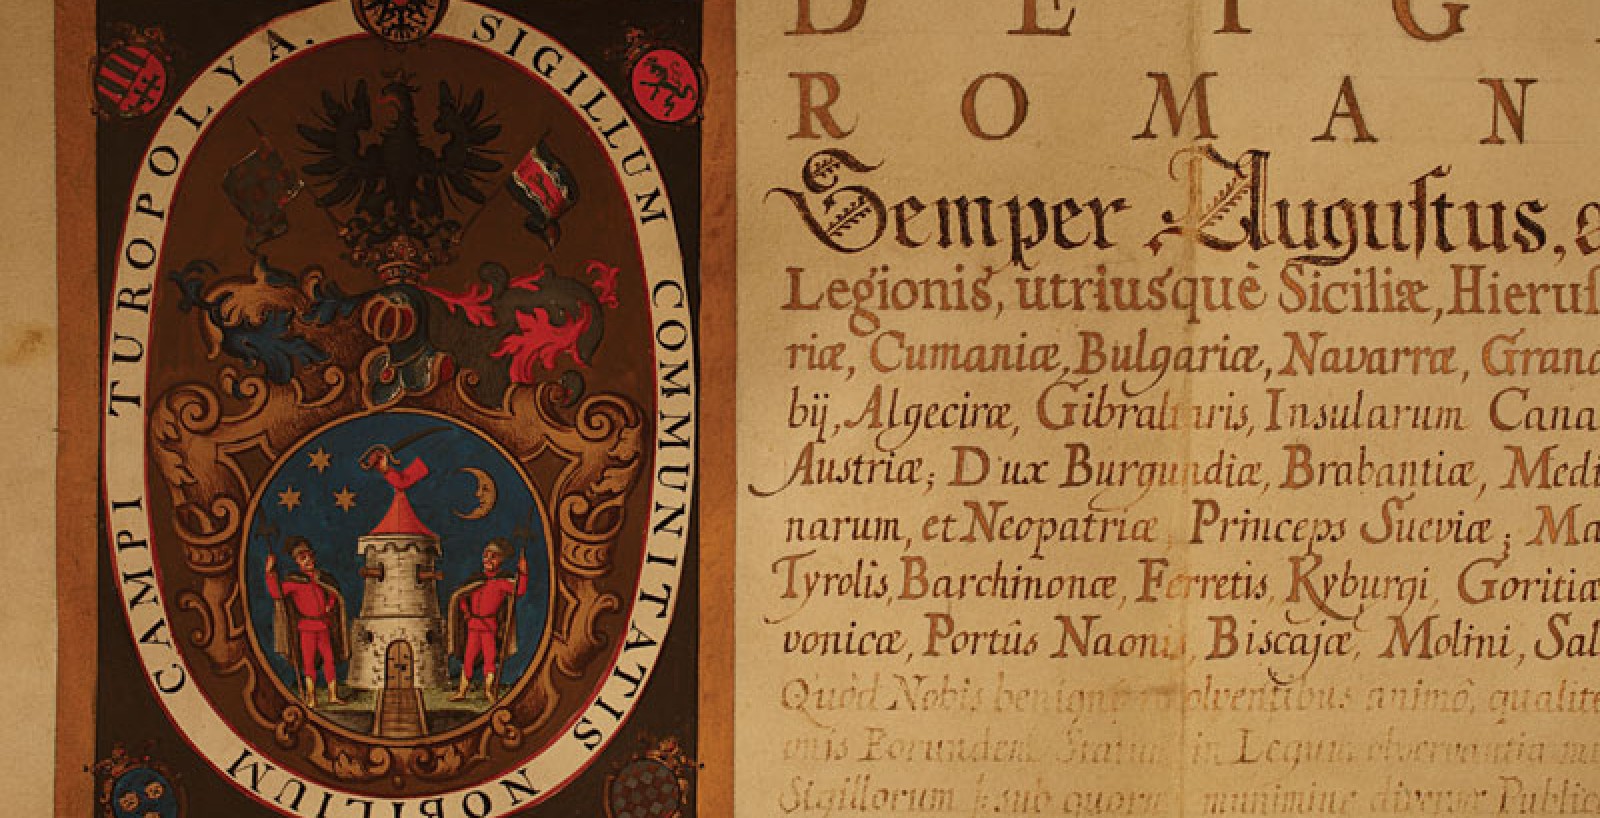 SIGILLUM COMMUNITATIS NOBILIUM CAMPI TUROPOLYA.
D E I G
R O M A N
Semper Auguſtus, a
Legionis, utriusquè Siciliæ, Hieruſ
riæ, Cumaniæ, Bulgariæ, Navarræ, Grana
bij, Algeciræ, Gibraltaris, Insularum Cana
Austriæ; Dux Burgundiæ, Brabantiæ, Medi
narum, et Neopatriæ Princeps Sueviæ; Ma
Tyrolis, Barchinonæ, Ferretis, Kyburgi, Goritiæ
vonicæ, Portûs Naonis, Biscajæ, Molini, Sal
Quòd Nobis benignò animô, qualite
onis Eorundem Statuum in Legum observantia
Sigillorum quorum munimine Public